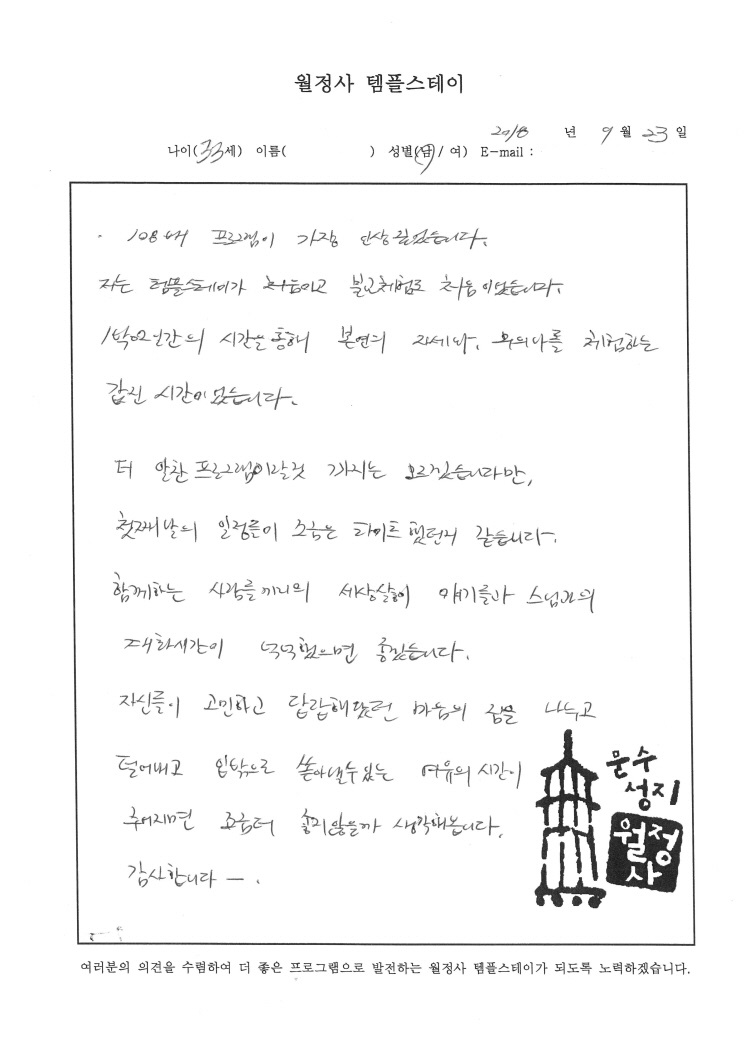 월정사 템플스테이
2018 년 9 월 23 일
나이(33세) 이름( ) 성별(남/ 여) E-mail :
· 108배 프로그램이 가장 인상 깊었습니다.
저는 템플스테이가 처음이고 불교체험도 처음이었습니다.
1박2일간의 시간을 통해 본연의 자세나, 무의나를 체험하는
값진 시간이었습니다.
더 알찬 프로그램이랄것 까지는 모르겠습니다만,
첫째날의 일정들이 조금은 타이트 했던거 같습니다.
함께하는 사람들끼리의 세상살이 얘기들과 스님과의
대화시간이 넉넉했으면 좋겠습니다.
자신들이 고민하고 답답해왔던 마음의 짐을 나누고
덜어내고 입밖으로 쏟아낼수있는 여유의 시간이
주어지면 조금더 좋지않을까 생각해봅니다.
감사합니다 ー.
문수
성지
월정
사
여러분의 의견을 수렴하여 더 좋은 프로그램으로 발전하는 월정사 템플스테이가 되도록 노력하겠습니다.